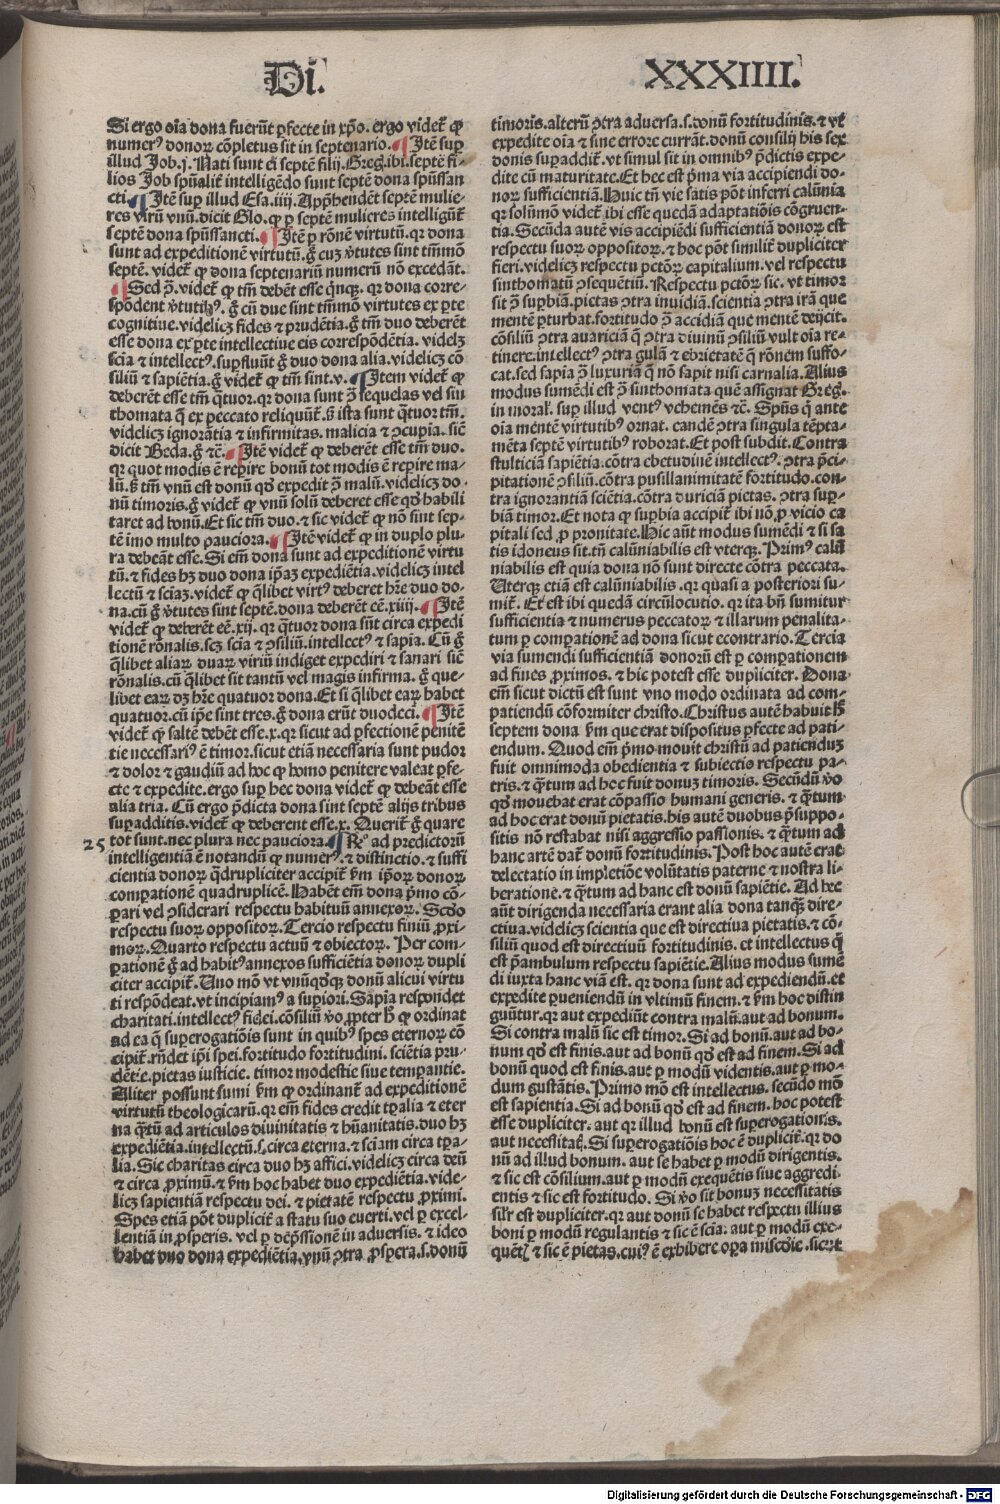 Di.
XXXIIII.
Si ergo oīa dona fuerūt ꝑfecte in xp̄o. ergo videt̄ ꝙ
numerꝰ donoꝝ cōpletus sit in septenario. ¶ Itē suꝑ
illud Job .j. Nati sunt ei septē filij. Greg. ibi. septē fi-
lios Job spūalit̄ intelligēdo sunt septē dona spūssan
cti. ¶ Itē suꝑ illud Esa. iiii. Appħendēt septē mulie-
res virū vnū. dicit Glo. ꝙ ꝑ septē mulieres intelligūt̄
septē dona spūssancti. ¶ Itē ꝑ rōnē virtutū. qꝛ dona
sunt ad expeditionē virtutū. g̊ cuȝ ṽtutes sint tm̄mō
septē. videt̄ ꝙ dona septenariū numerū nō excedāt.
¶ Sed ꝯ̄. videt̄ ꝙ tm̄ debēt esse qͥnqȝ. qꝛ dona corre-
spōdent ṽtutibꝰ. g̊ cū due sint tm̄mō virtutes ex ꝑte
cognitiue. videlicȝ fides ⁊ prudētia. g̊ tm̄ duo deberēt
esse dona ex ꝑte intellectiue eis correspōdētia. videlȝ
scīa ⁊ intellectꝰ. suꝑfluūt g̊ duo dona alia. videlicȝ cō
siliū ⁊ sapiētia. g̊ videt̄ ꝙ tm̄ sint .v. ¶ Item videt̄ ꝙ
deberēt esse tm̄ qͣtuor. qꝛ dona sunt ꝯ̄ sequelas vel sin
thomata q̄ ex peccato reliquūt̄. s̄ ista sunt qͣtuor tm̄.
videlicȝ ignorātia ⁊ infirmitas. malicia ⁊ ꝯcupia. sic̄
dicit Beda. g̊ ⁊c̄. ¶ Itē videt̄ ꝙ deberēt esse tm̄ duo.
qꝛ quot modis ē reꝑire bonū tot modis ē reꝑire ma-
lū. s̄ tm̄ vnū est donū qd̓ expedit ꝯ̄ malū. videlicȝ do-
nū timoris. g̊ videt̄ ꝙ vnū solū deberet esse qd̓ habili
taret ad bonū. Et sic tm̄ duo. ⁊ sic videt̄ ꝙ nō sint sep-
tē īmo multo pauciora. ¶ Itē videt̄ ꝙ in duplo plu-
ra debeāt esse. Si em̄ dona sunt ad expeditionē virtu
tū. ⁊ fides hȝ duo dona ip̄aȝ expediētia. videlicȝ intel
lectū ⁊ sciāȝ. videt̄ ꝙ qͣlibet virtꝰ deberet h̄re duo do-
na. cū g̊ ṽtutes sint septē. dona deberēt eē. xiiij. ¶ Itē
videt̄ ꝙ deberēt eē. xij. qꝛ qͣtuor dona sūt circa expedi
tionē rōnalis. scȝ scīa ⁊ ꝯsiliū. intellectꝰ ⁊ sapīa. Cū g̊
qͣlibet aliaꝝ duaꝝ viriū indiget expediri ⁊ sanari sic̄
rōnalis. cū qͣlibet sit tantū vel magis infirma. g̊ que-
libet eaꝝ dȝ h̄re quatuor dona. Et si qͣlibet eaꝝ habet
quatuor. cū ip̄e sint tres. g̊ dona erūt duodeci. ¶ Itē
videt̄ ꝙ saltē debēt esse .x. qꝛ sicut ad ꝑfectionē penitē
tie necessariꝰ ē timor. sicut etiā necessaria sunt pudor
⁊ dolor ⁊ gaudiū ad hoc ꝙ homo penitere valeat ꝑfe-
cte ⁊ expedite. ergo suꝑ hec dona videt̄ ꝙ debeāt esse
alia tria. Cū ergo p̄dicta dona sint septē alijs tribus
suꝑadditis. videt̄ ꝙ deberent esse .x. Querit̄ g̊ quare
tot sunt. nec plura nec pauciora. ¶ Rͦ. ad predictorū
25
intelligentiā ē notandū ꝙ numerꝰ. ⁊ distinctio. ⁊ suffi
cientia donoꝝ qͣdrupliciter accipit̄ ẜm ip̄oꝝ donoꝝ
comꝑationē quadruplicē. Habēt em̄ dona p̄mo cō-
ꝑari vel ꝯsiderari respectu habituū annexoꝝ. Scd̓o
respectu suoꝝ oppositoꝝ. Tercio respectu finiū ꝓxi-
moꝝ. Quarto respectu actuū ⁊ obiectoꝝ. Per com-
ꝑationē g̊ ad habitꝰ annexos sufficiētia donoꝝ dupli
citer accipit̄. Uno mō vt vnūqd̓qȝ donū alicui virtu
ti respōdeat. vt incipiamꝰ a suꝑiori. Sapīa respondet
charitati. intellectꝰ fidei. cōsiliū ṽo ꝓpter h̄ ꝙ ordinat
ad ea q̄ suꝑerogatiōis sunt in quibꝰ spes eternoꝝ cō
cipit̄. rn̄det ip̄i spei. fortitudo fortitudini. sciētia pru-
dētie. pietas iusticie. timor modestie siue temꝑantie.
Aliter possunt sumi ẜm ꝙ ordinant̄ ad expeditionē
virtutū theologicarū. qꝛ em̄ fides credit tꝑalia ⁊ eter
na qͣtū ad articulos diuinitatis ⁊ hūanitatis. duo hȝ
expediētia. intellectū .s. circa eterna. ⁊ sciam circa tꝑa-
lia. Sic charitas circa duo hȝ affici. videlicȝ circa deū
⁊ circa ꝓximū. ⁊ ẜm hoc habet duo expediētia. vide-
licȝ sapientiā respectu dei. ⁊ pietatē respectu ꝓximi.
Spes etiā pōt duplicit̄ a statu suo euerti. vel ꝑ excel-
lentiā in ꝓsperis. vel ꝑ dep̄ssionē in aduersis. ⁊ ideo
habet duo dona expediētia. vnū ꝯtra ꝓspera .s. donū
timoris. alterū ꝯtra aduersa .s. donū fortitudinis. ⁊ vt
expedite oīa ⁊ sine errore currāt. donū consilij his sex
donis suꝑaddit̄. vt simul sit in omnibꝰ p̄dictis expe-
dite cū maturitate. Et hec est p̄ma via accipiendi do-
noꝝ sufficientiā. Huic tn̄ vie satis pōt inferri calūnia
qꝛ solūmō videt̄ ibi esse quedā adaptatiōis cōgruen-
tia. Secūda autē vis accipiēdi sufficientiā donoꝝ est
respectu suoꝝ oppositoꝝ. ⁊ hoc pōt similit̄ dupliciter
fieri. videlicȝ respectu pctōꝝ capitalium. vel respectu
sinthomatū ꝯsequētiū. Respectu pctōꝝ sic. vt timor
sit ꝯ̄ suꝑbiā. pietas ꝯtra inuidiā. scientia ꝯtra irā que
mentē ꝑturbat. fortitudo ꝯ̄ accidiā que mentē deijcit.
cōsiliū ꝯtra auariciā q̄ ꝯtra diuinū ꝯsiliū vult oīa re-
tinere. intellectꝰ ꝯtra gulā ⁊ ebrietatē q̄ rōnem suffo-
cat. sed sapīa ꝯ̄ luxuriā q̄ nō sapit nisi carnalia. Alius
modus sumēdi est ꝯ̄ sinthomata que assignat Greg.
in moral̓. suꝑ illud ventꝰ vehemēs ⁊c̄. Spūs q̄ ante
oīa mentē virtutibꝰ ornat. eandē ꝯtra singula tēpta-
mēta septē virtutibꝰ roborat. Et post subdit. Contra
stulticiā sapiētia. cōtra ebetudinē intellectꝰ. ꝯtra p̄ci-
pitationē ꝯsiliū. cōtra pusillanimitatē fortitudo. con-
tra ignorantiā sciētia. cōtra duriciā pietas. ꝯtra suꝑ-
biā timor. Et nota ꝙ suꝑbia accipit̄ ibi nō ꝓ vicio ca
pitali sed ꝓ pronitate. Hic aūt modus sumēdi ⁊ si sa
tis idoneus sit. tn̄ calūniabilis est vterqȝ. Primꝰ calū
niabilis est quia dona nō sunt directe cōtra peccata.
Uterqȝ etiā est calūniabilis. qꝛ quasi a posteriori su-
mit̄. Et est ibi quedā circūlocutio. qꝛ ita bn̄ sumitur
sufficientia ⁊ numerus peccatoꝝ ⁊ illarum penalita-
tum ꝑ comꝑationē ad dona sicut econtrario. Tercia
via sumendi sufficientiā donorū est ꝑ comꝑationem
ad fines ꝓximos. ⁊ hic potest esse dupliciter. Dona
em̄ sicut dictū est sunt vno modo ordinata ad com-
patiendū cōformiter christo. Christus autē habuit h̄
septem dona ẜm que erat dispositus ꝑfecte ad pati-
endum. Quod em̄ p̄mo mouit christū ad patienduȝ
fuit omnimoda obedientia ⁊ subiectio respectu pa-
tris. ⁊ qͣtum ad hoc fuit donuȝ timoris. Secūdū ṽo
qd̓ mouebat erat cōpassio humani generis. ⁊ qͣtum
ad hoc erat donū pietatis. his autē duobus p̄suppo-
sitis nō restabat nisi aggressio passionis. ⁊ qͣtum ad
hanc artē dat̄ donū fortitudinis. Post hoc autē erat
delectatio in impletiōe volūtatis paterne ⁊ nostra li-
beratione. ⁊ qͣtum ad hanc est donū sapiētie. Ad hec
aūt dirigenda necessaria erant alia dona tanqȝ dire-
ctiua. videlicȝ scientia que est directiua pietatis. ⁊ cō-
siliū quod est directiuū fortitudinis. et intellectus q̄
est p̄ambulum respectu sapiētie. Alius modus sumē
di iuxta hanc viā est. qꝛ dona sunt ad expediendū. et
expedite ꝑueniendū in vltimū finem. ⁊ ẜm hoc distin
guūtur. qꝛ aut expediūt contra malū. aut ad bonum.
Si contra malū sic est timor. Si ad bonū. aut ad bo-
num qd̓ est finis. aut ad bonū qd̓ est ad finem. Si ad
bonū quod est finis. aut ꝑ modū videntis. aut ꝑ mo-
dum gustātis. Primo mō est intellectus. secūdo mō
est sapientia. Si ad bonū qd̓ est ad finem. hoc potest
esse dupliciter. aut qꝛ illud bonū est suꝑerogationis.
aut necessitatꝭ. Si suꝑerogatiōis hoc ē duplicit̄. qꝛ do
nū ad illud bonum. aut se habet ꝑ modū dirigentis.
⁊ sic est cōsilium. aut ꝑ modū exequētis siue aggredi-
entis ⁊ sic est fortitudo. Si ṽo sit bonuȝ necessitatis
sil̓r est dupliciter. qꝛ aut donū se habet respectu illius
boni ꝑ modū regulantis ⁊ sic ē scīa. aut ꝑ modū exe-
quētꝭ ⁊ sic ē pietas. cuiꝰ ē exhibere oꝑa miscd̓ie. sicut
Digitalisierung gefördert durch die Deutsche Forschungsgemeinschaft - DFG